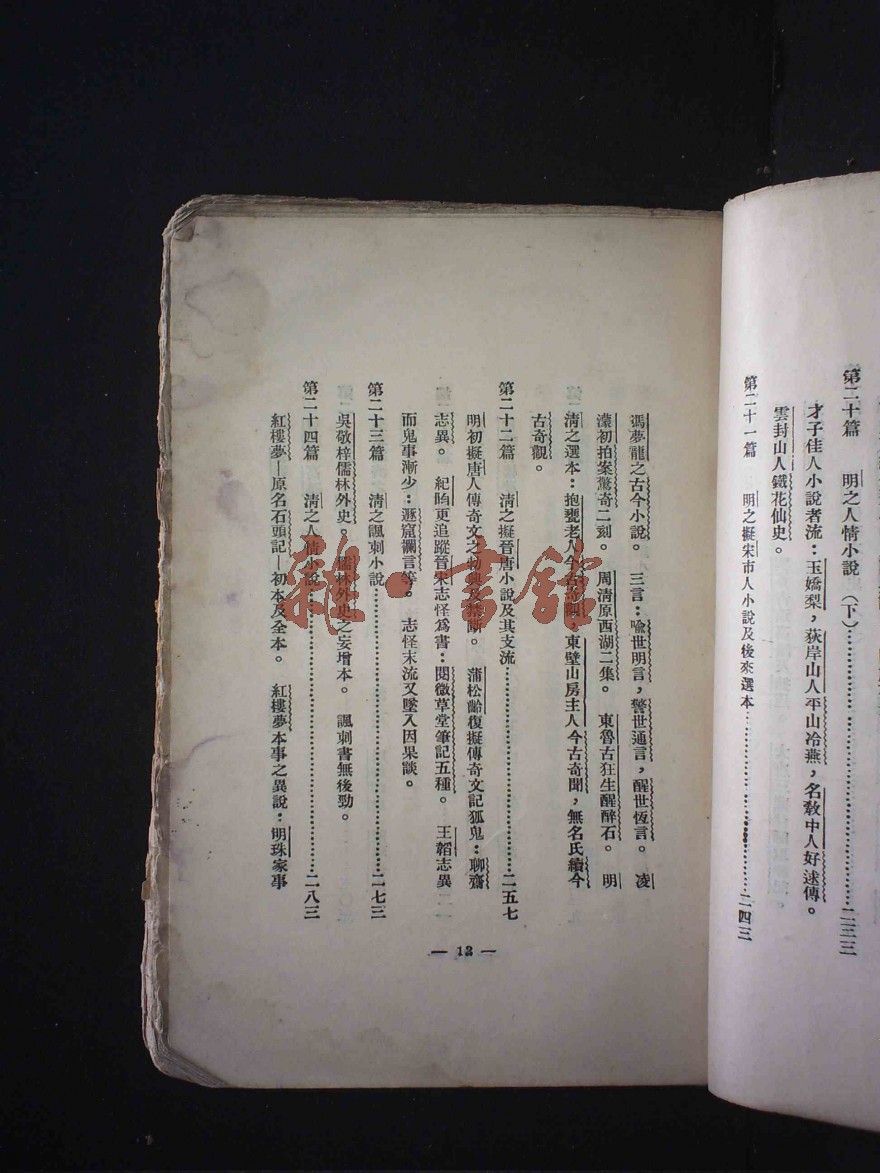 第二十篇　明之人情小說（下）……………………二三三
才子佳人小說者流：玉嬌梨，荻岸山人平山冷燕，名敎中人好逑傳。
雲封山人鐵花仙史。
第二十一篇　明之擬宋市人小說及後來選本……………………二四三
馮夢龍之古今小說。　三言：喩世明言，警世通言，醒世恆言。　凌
濛初拍案驚奇二刻。　周淸原西湖二集。　東魯古狂生醒醉石。　明
淸之選本：抱甕老人今古奇觀，東壁山房主人今古奇聞，無名氏續今
古奇觀。
第二十二篇　淸之擬晉唐小說及其支流……………………二五七
明初擬唐人傳奇文之勃興及禁斷。　蒲松齡復擬傳奇文記狐鬼：聊齋
志異。　紀昀更追蹤晉宋志怪爲書：閱微草堂筆記五種。　王韜志異
而鬼事漸少：遯窟讕言等。　志怪末流又墜入因果談。
第二十三篇　淸之諷刺小說……………………二七三
吳敬梓儒林外史。　儒林外史之妄增本。　諷刺書無後勁。
第二十四篇　淸之人情小說……………………二八三
紅樓夢—原名石頭記—初本及全本。　紅樓夢本事之異說：明珠家事
— 12 —
雜·書館